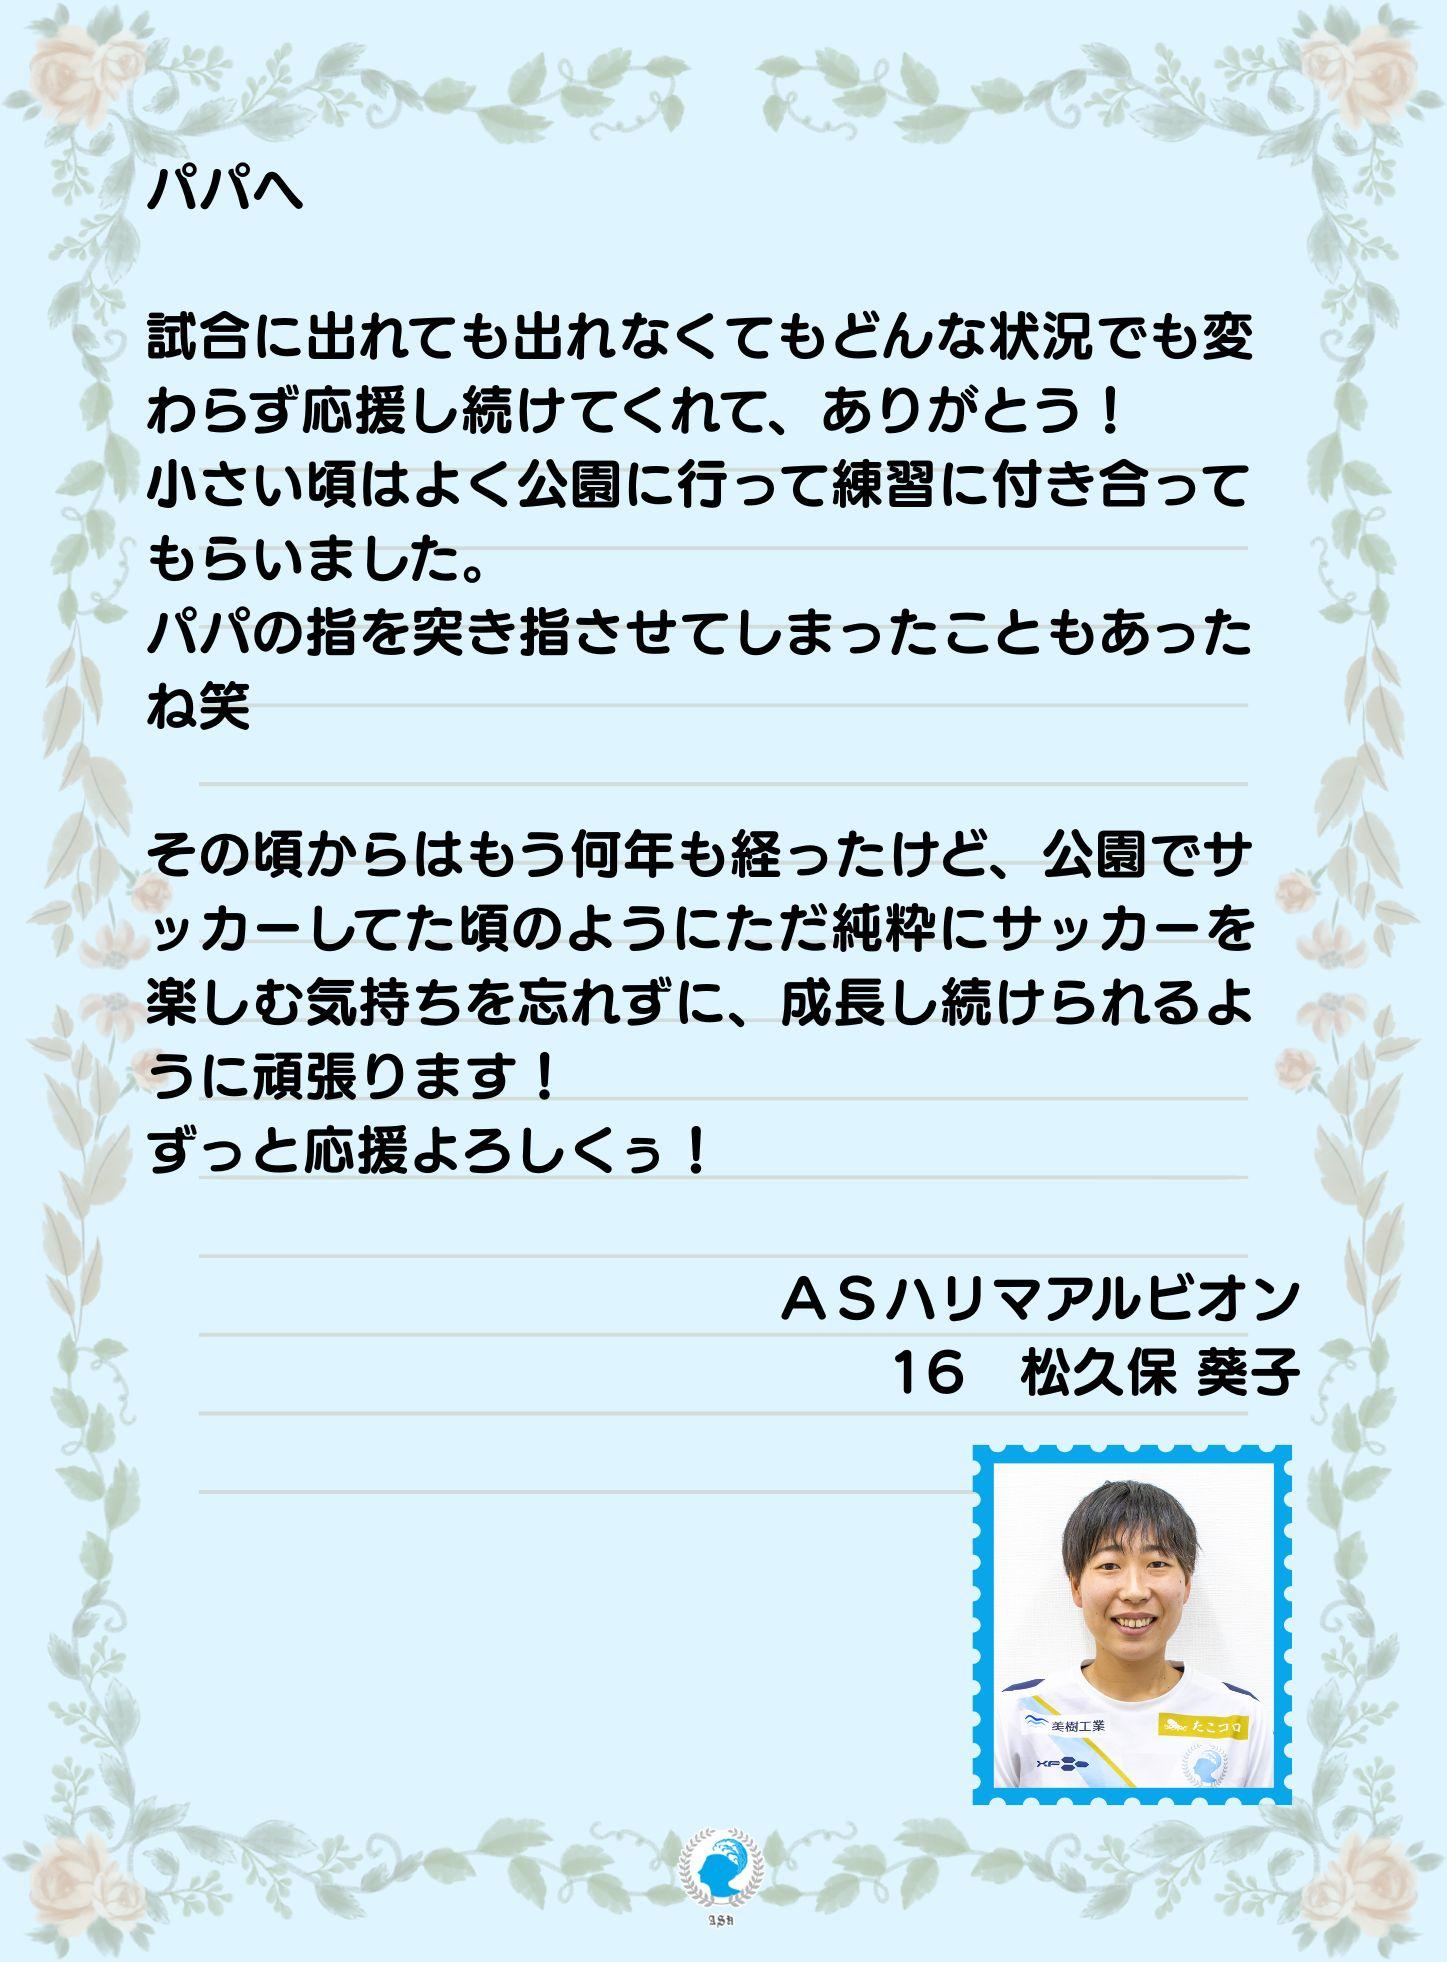 パパへ
試合に出れても出れなくてもどんな状況でも変
わらず応援し続けてくれて、ありがとう！
小さい頃はよく公園に行って練習に付き合って
もらいました。
パパの指を突き指させてしまったこともあった
ね笑
その頃からはもう何年も経ったけど、公園でサ
ッカーしてた頃のようにただ純粋にサッカーを
楽しむ気持ちを忘れずに、成長し続けられるよ
うに頑張ります！
ずっと応援よろしくぅ！
ＡＳハリマアルビオン
16　松久保 葵子
美樹工業
たこコロ
XF
ASH